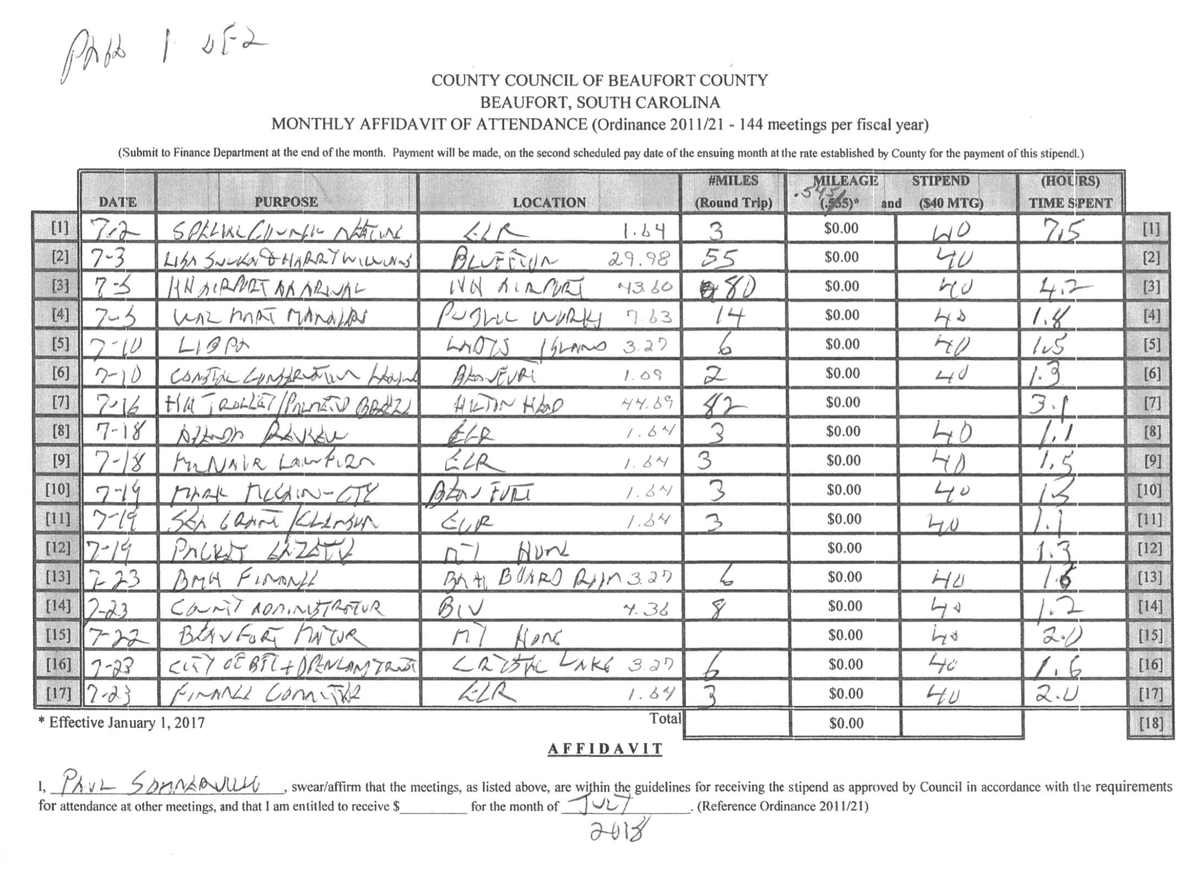 PAGE 1 OF 2
COUNTY COUNCIL OF BEAUFORT COUNTY
BEAUFORT, SOUTH CAROLINA
MONTHLY AFFIDAVIT OF ATTENDANCE (Ordinance 2011/21 - 144 meetings per fiscal year)
(Submit to Finance Department at the end of the month. Payment will be made, on the second scheduled pay date of the ensuing month at the rate established by County for the payment of this stipend.)
#MILES MILEAGE STIPEND (HOURS)
DATE PURPOSE LOCATION (Round Trip) .545 (.535)* and ($40 MTG) TIME SPENT
[1] 7-2 SPECIAL COUNCIL MEETING ELR 1.64 3 $0.00 40 7.5 [1]
[2] 7-3 LISA & HARRY WILLIAMS BLUFFTON 29.98 55 $0.00 40 [2]
[3] HH AIRPORT HH AIRPORT 43.60 80 $0.00 40 4.2 [3]
[4] WAL MART MANAGERS PUBLIC WORKS 7.63 14 $0.00 40 1.8 [4]
[5] 7-10 LIBPA LADYS ISLAND 3.27 6 $0.00 40 1.5 [5]
[6] 7-10 COASTAL CONSERVATION BEAUFORT 1.09 2 $0.00 40 1.3 [6]
[7] 7-16 HH TROLLEY/PALMETTO BREEZE HILTON HEAD 44.69 82 $0.00 3.1 [7]
[8] 7-18 AGENDA REVIEW ELR 1.64 3 $0.00 40 1.1 [8]
[9] 7-18 MCNAIR LAW FIRM ELR 1.64 3 $0.00 40 1.5 [9]
[10] 7-19 MARK MCCAIN-CTY BEAUFORT 1.64 3 $0.00 40 [10]
[11] 7-19 SEA GRANT/CLEMSON ELR 1.64 3 $0.00 40 1.1 [11]
[12] 7-19 PACKET GAZETTE MY HOME $0.00 1.3 [12]
[13] 7-23 BMH FINANCE BMH BOARD RM 3.27 6 $0.00 40 1.6 [13]
[14] 7-23 COUNTY ADMINISTRATOR BIV 4.36 8 $0.00 40 1.2 [14]
[15] 7-22 BEAUFORT MAYOR MY HOME $0.00 40 2.0 [15]
[16] 7-23 CITY OF BFT + OPENLAND TRUST CRYSTAL LAKE 3.27 6 $0.00 40 1.6 [16]
[17] 7-23 FINANCE COMMITTEE ELR 1.64 3 $0.00 40 2.0 [17]
* Effective January 1, 2017 Total $0.00 [18]
AFFIDAVIT
I, PAUL SOMMERVILLE, swear/affirm that the meetings, as listed above, are within the guidelines for receiving the stipend as approved by Council in accordance with the requirements
for attendance at other meetings, and that I am entitled to receive $ for the month of JULY. (Reference Ordinance 2011/21)
2018